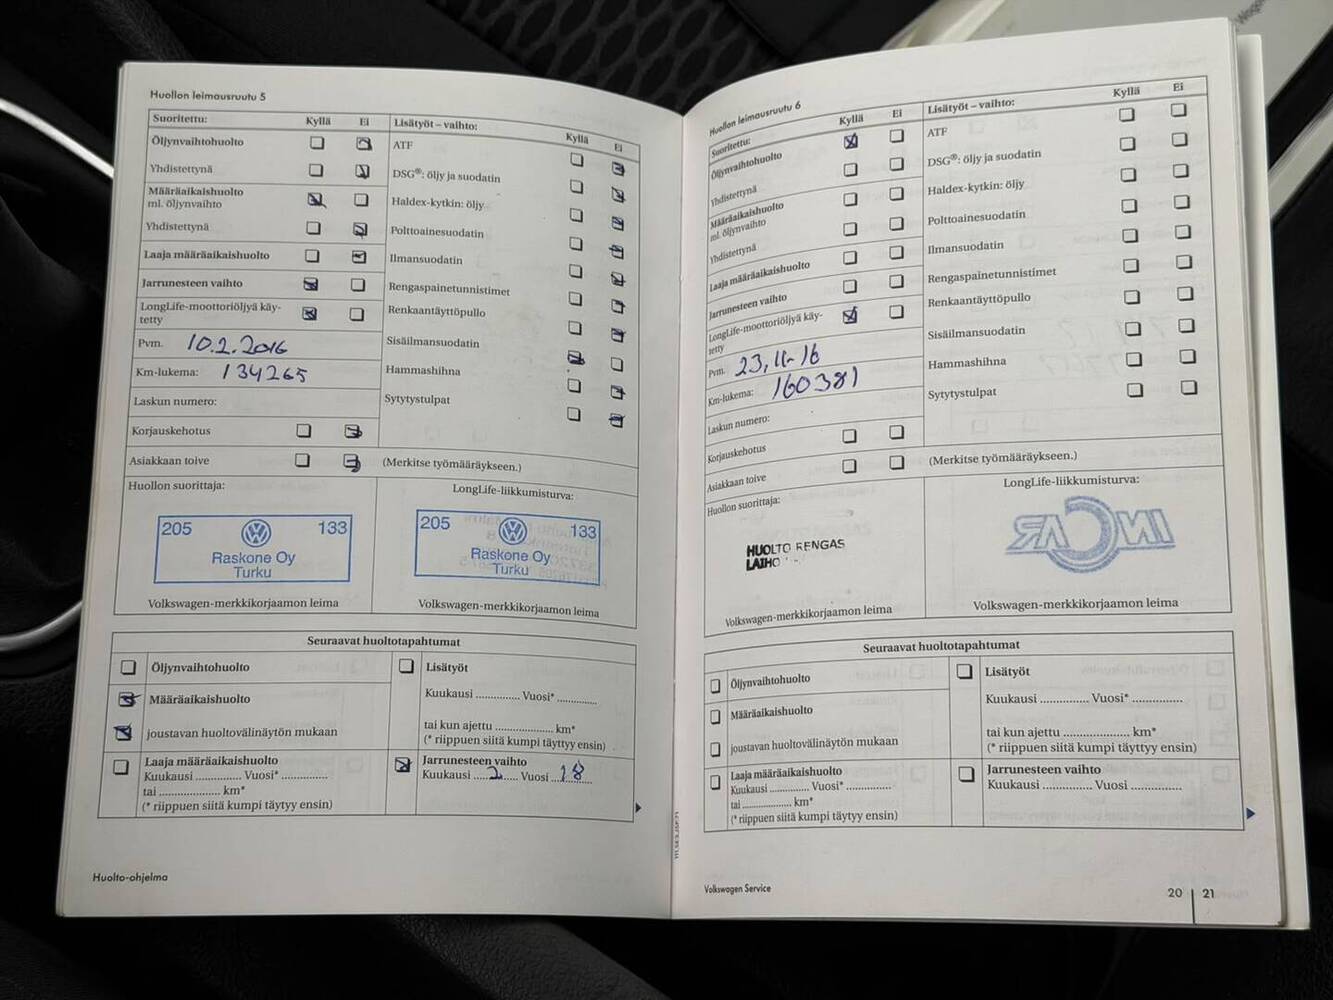 Huollon leimausruutu 5
Suoritettu: Kyllä Ei
Öljynvaihtohuolto
Yhdistettynä
Määräaikaishuolto
ml. öljynvaihto
Yhdistettynä
Laaja määräaikaishuolto
Jarrunesteen vaihto
LongLife-moottoriöljyä käy-
tetty
Pvm. 10.2.2016
Km-lukema: 134265
Laskun numero:
Korjauskehotus
Asiakkaan toive
Lisätyöt – vaihto: Kyllä Ei
ATF
DSG®: öljy ja suodatin
Haldex-kytkin: öljy
Polttoainesuodatin
Ilmansuodatin
Rengaspainetunnistimet
Renkaantäyttöpullo
Sisäilmansuodatin
Hammashihna
Sytytystulpat
(Merkitse työmääräykseen.)
Huollon suorittaja:
205 133
Raskone Oy
Turku
Volkswagen-merkkikorjaamon leima
LongLife-liikkumisturva:
205 133
Raskone Oy
Turku
Volkswagen-merkkikorjaamon leima
Seuraavat huoltotapahtumat
Öljynvaihtohuolto
Määräaikaishuolto
joustavan huoltovälinäytön mukaan
Laaja määräaikaishuolto
Kuukausi .............. Vuosi* ..............
tai .................... km*
(* riippuen siitä kumpi täytyy ensin)
Lisätyöt
Kuukausi .............. Vuosi* ..............
tai kun ajettu .................... km*
(* riippuen siitä kumpi täyttyy ensin)
Jarrunesteen vaihto
Kuukausi 2 Vuosi 18
Huolto-ohjelma
Huollon leimausruutu 6
Suoritettu: Kyllä Ei
Öljynvaihtohuolto
Yhdistettynä
Määräaikaishuolto
ml. öljynvaihto
Yhdistettynä
Laaja määräaikaishuolto
Jarrunesteen vaihto
LongLife-moottoriöljyä käy-
tetty
Pvm. 23.11-16
Km-lukema: 160381
Laskun numero:
Korjauskehotus
Asiakkaan toive
Lisätyöt – vaihto: Kyllä Ei
ATF
DSG®: öljy ja suodatin
Haldex-kytkin: öljy
Polttoainesuodatin
Ilmansuodatin
Rengaspainetunnistimet
Renkaantäyttöpullo
Sisäilmansuodatin
Hammashihna
Sytytystulpat
(Merkitse työmääräykseen.)
Huollon suorittaja:
HUOLTO RENGAS
LAIHO
Volkswagen-merkkikorjaamon leima
LongLife-liikkumisturva:
INCAR
Volkswagen-merkkikorjaamon leima
Seuraavat huoltotapahtumat
Öljynvaihtohuolto
Määräaikaishuolto
joustavan huoltovälinäytön mukaan
Laaja määräaikaishuolto
Kuukausi .............. Vuosi* ..............
tai .................... km*
(* riippuen siitä kumpi täytyy ensin)
Lisätyöt
Kuukausi .............. Vuosi* ..............
tai kun ajettu .................... km*
(* riippuen siitä kumpi täyttyy ensin)
Jarrunesteen vaihto
Kuukausi .............. Vuosi ..............
Volkswagen Service
20 21